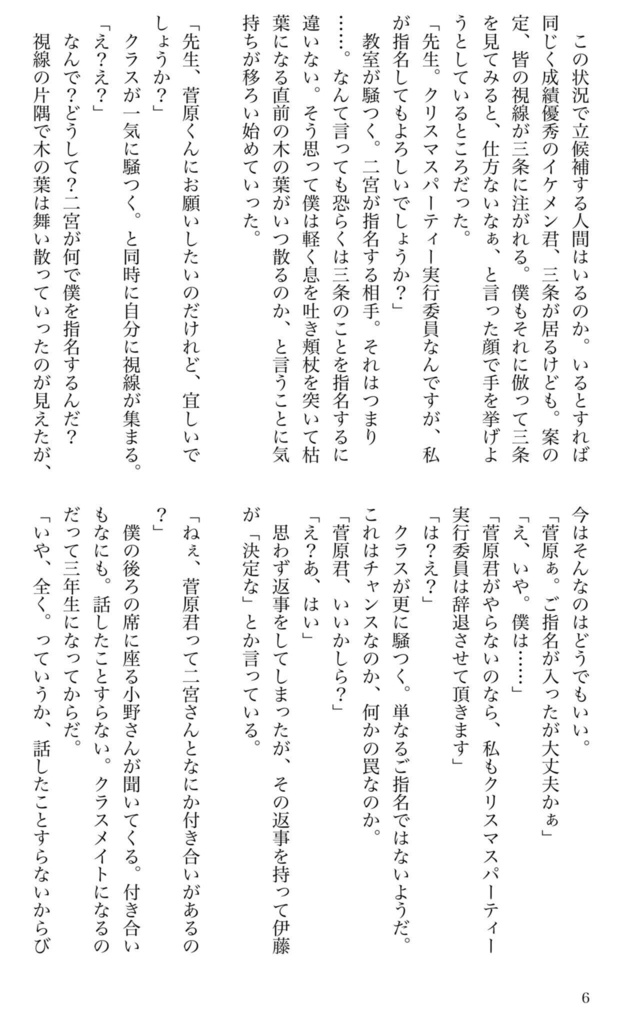 この状況で立候補する人間はいるのか。いるとすれば
同じく成績優秀のイケメン君、三条が居るけども。案の
定、皆の視線が三条に注がれる。僕もそれに倣って三条
を見てみると、仕方ないなぁ、と言った顔で手を挙げよ
うとしているところだった。
「先生。クリスマスパーティー実行委員なんですが、私
が指名してもよろしいでしょうか？」
　教室が騒つく。二宮が指名する相手。それはつまり
……。なんて言っても恐らくは三条のことを指名するに
違いない。そう思って僕は軽く息を吐き頬杖を突いて枯
葉になる直前の木の葉がいつ散るのか、と言うことに気
持ちが移ろい始めていった。
「先生、菅原くんにお願いしたいのだけれど、宜しいで
しょうか？」
　クラスが一気に騒つく。と同時に自分に視線が集まる。
「え？え？」
　なんで？どうして？二宮が何で僕を指名するんだ？
　視線の片隅で木の葉は舞い散っていったのが見えたが、
今はそんなのはどうでもいい。
「菅原ぁ。ご指名が入ったが大丈夫かぁ」
「え、いや。僕は……」
「菅原君がやらないのなら、私もクリスマスパーティー
実行委員は辞退させて頂きます」
「は？え？」
　クラスが更に騒つく。単なるご指名ではないようだ。
これはチャンスなのか、何かの罠なのか。
「菅原君、いいかしら？」
「え？あ、はい」
　思わず返事をしてしまったが、その返事を持って伊藤
が「決定な」とか言っている。
「ねぇ、菅原君って二宮さんとなにか付き合いがあるの
？」
　僕の後ろの席に座る小野さんが聞いてくる。付き合い
もなにも。話したことすらない。クラスメイトになるの
だって三年生になってからだ。
「いや、全く。っていうか、話したことすらないからび
6